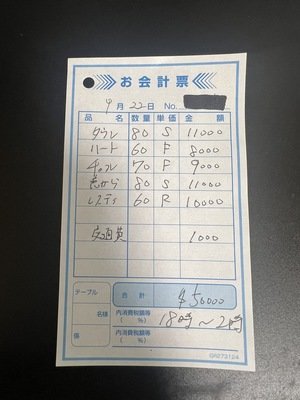 お会計票
9月22日 No.
品名 数量 単価 金額
ダウル 80 S 11000
ハート 60 F 8000
チョル 70 F 9000
80 S 11000
レスティ 60 R 10000
交通費 1000
テーブル 合計 $50000
名様 内消費税額等 ( %)
18時〜2時
係 内消費税額等 ( %)
GR273124